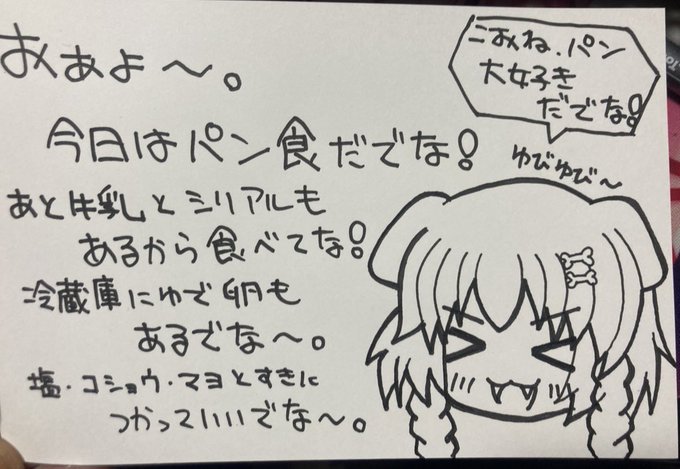 おぁよ～。
今日はパン食だでな！
あと牛乳とシリアルも
あるから食べてな！
冷蔵庫にゆで卵も
あるでな～。
塩・コショウ・マヨとすきに
つかっていいでな～。
こおね、パン
大好き
だでな！
ゆびゆび～